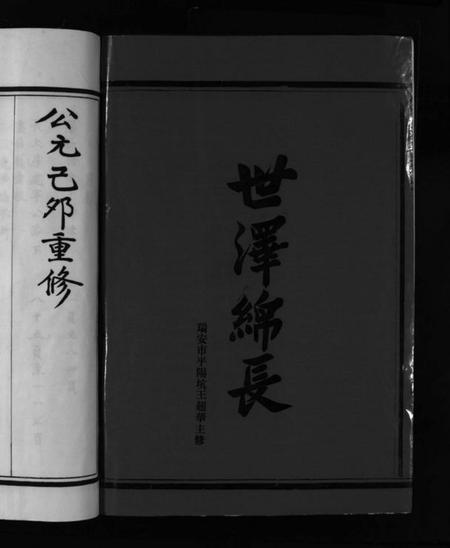 世澤綿長
瑞安市平陽坑王超華主修
公元己卯重修